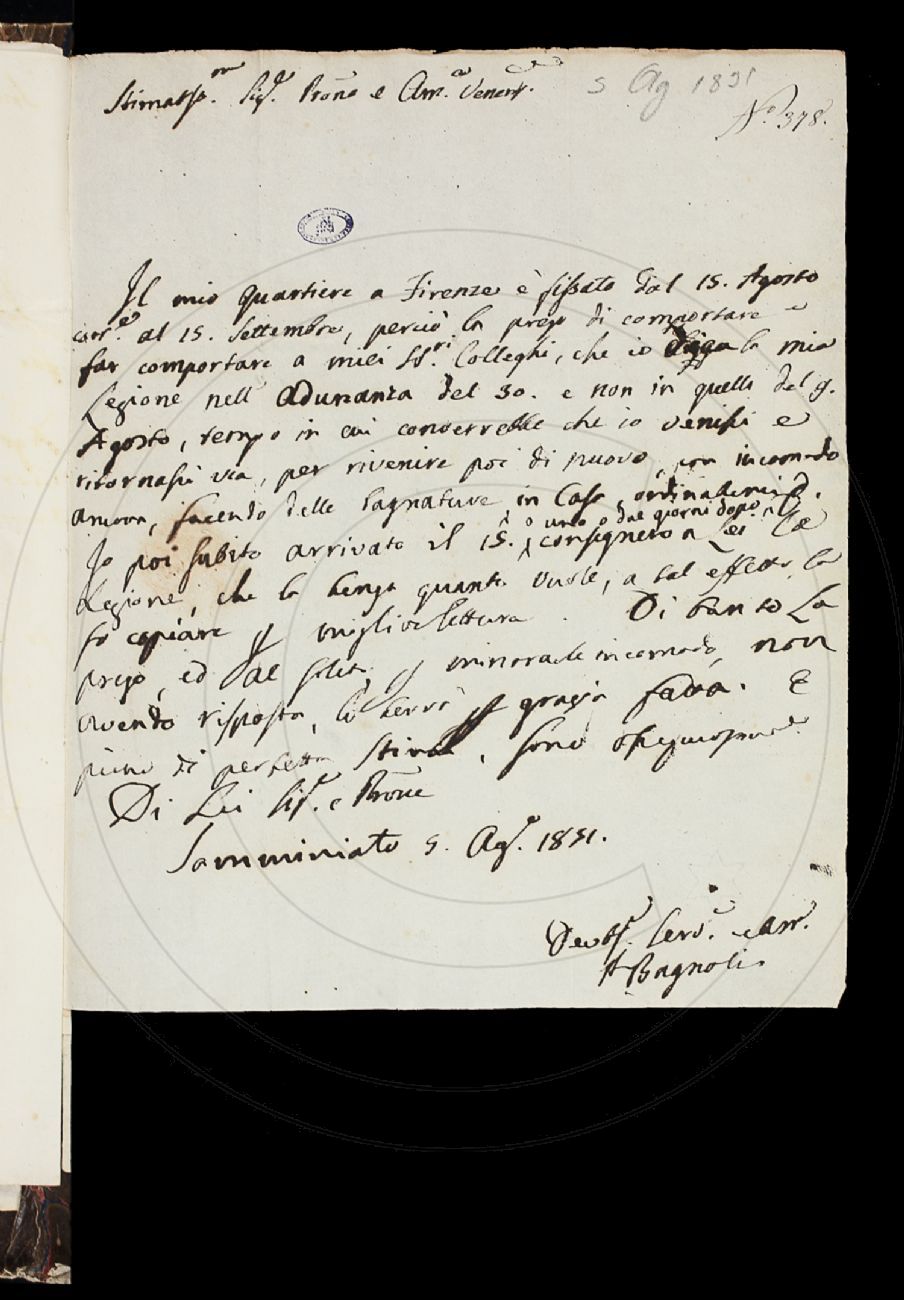 Stimatss.mo Sig.r Prone e Am.o Venert.
5 Ag 1831
N.o 378.
Il mio quartiere a Firenze è fissato dal 15. Agosto
corr.e al 15. Settembre, perciò la prego di comportare e
far comportare a miei SS.ri Colleghi, che io legga la mia
Lezione nell' Adunanza del 30. e non in quella del 9.
Agosto, tempo in cui converrebbe che io venissi e
ritornassi via, per rivenire poi di nuovo, con incomodo
ancora, facendo delle in Casa,
Io poi subito arrivato il 15. o uno o due giorni dopo, consegnerò a Lei la
Lezione, che la tenga quanto vuole, a tal effetto la
fo copiare p migliore lettura. Di tanto La
prego, ed al solito p minorarle incomodo, non
avendo risposta, la terrò p grazia fatta. E
pieno di perfetta Stima, sono
Di Lei Sig.r e Prone
Samminiato 5. Ag.o 1831.
Devot. Serv.e e Am.
Bagnoli